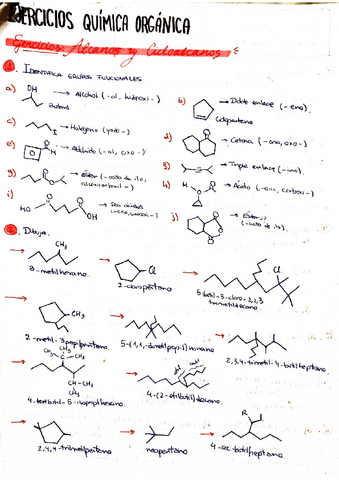 EJERCICIOS QUÍMICA ORGÁNICA
Ejercicios: Alcanos y Cicloalcanos
1 IDENTIFICA GRUPOS FUNCIONALES
a) OH → Alcohol (-ol, hidroxi-)
Butanol
b) → Doble enlace (-eno).
Ciclopenteno
c) → Halógeno (yodo-)
d) → Cetona (-ona, oxo-)
e) → Aldehído (-al, oxo-)
g) → Éster (-oato de ilo,
→ Triple enlace (-ino).
h) → Ácido (-oico, carboxi-)
i) HO OH
j) → Éster
(-oato de ilo).
2 Dibuja.
CH3
3-metilhexano.
Cl
2-cloropentano
Cl
5-butil-3-cloro-2,2,3
trimetildecano.
CH3
2-metil-3-propilpentano.
5-(1,1,-dimetilpropil)nonano
2,3,4-trimetil-4-butilheptano.
CH-CH3
CH3
4-tertbutil-5-isopropilhexano.
4-(2-etilbutil)decano.
2,4,4-trimetilpentano
neopentano
4-sec-butilheptano.